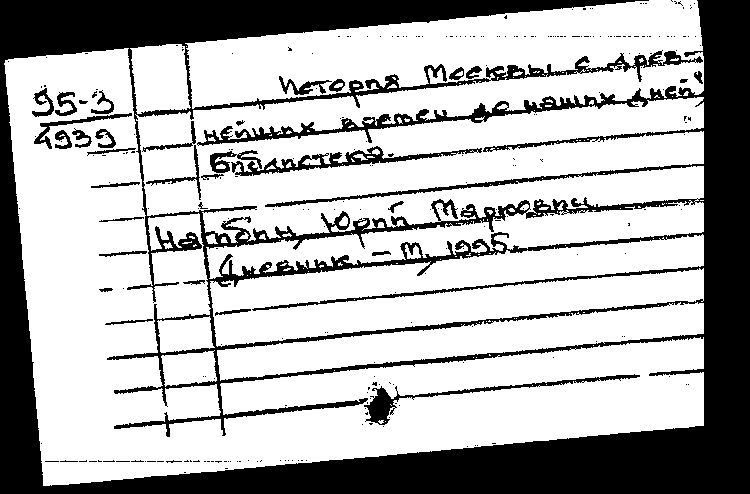 95-3
4939
История Москвы с древ-
нейших времен до наших дней,
Библиотека.
Нагибин, Юрий Маркович
Дневник. – М., 1995.